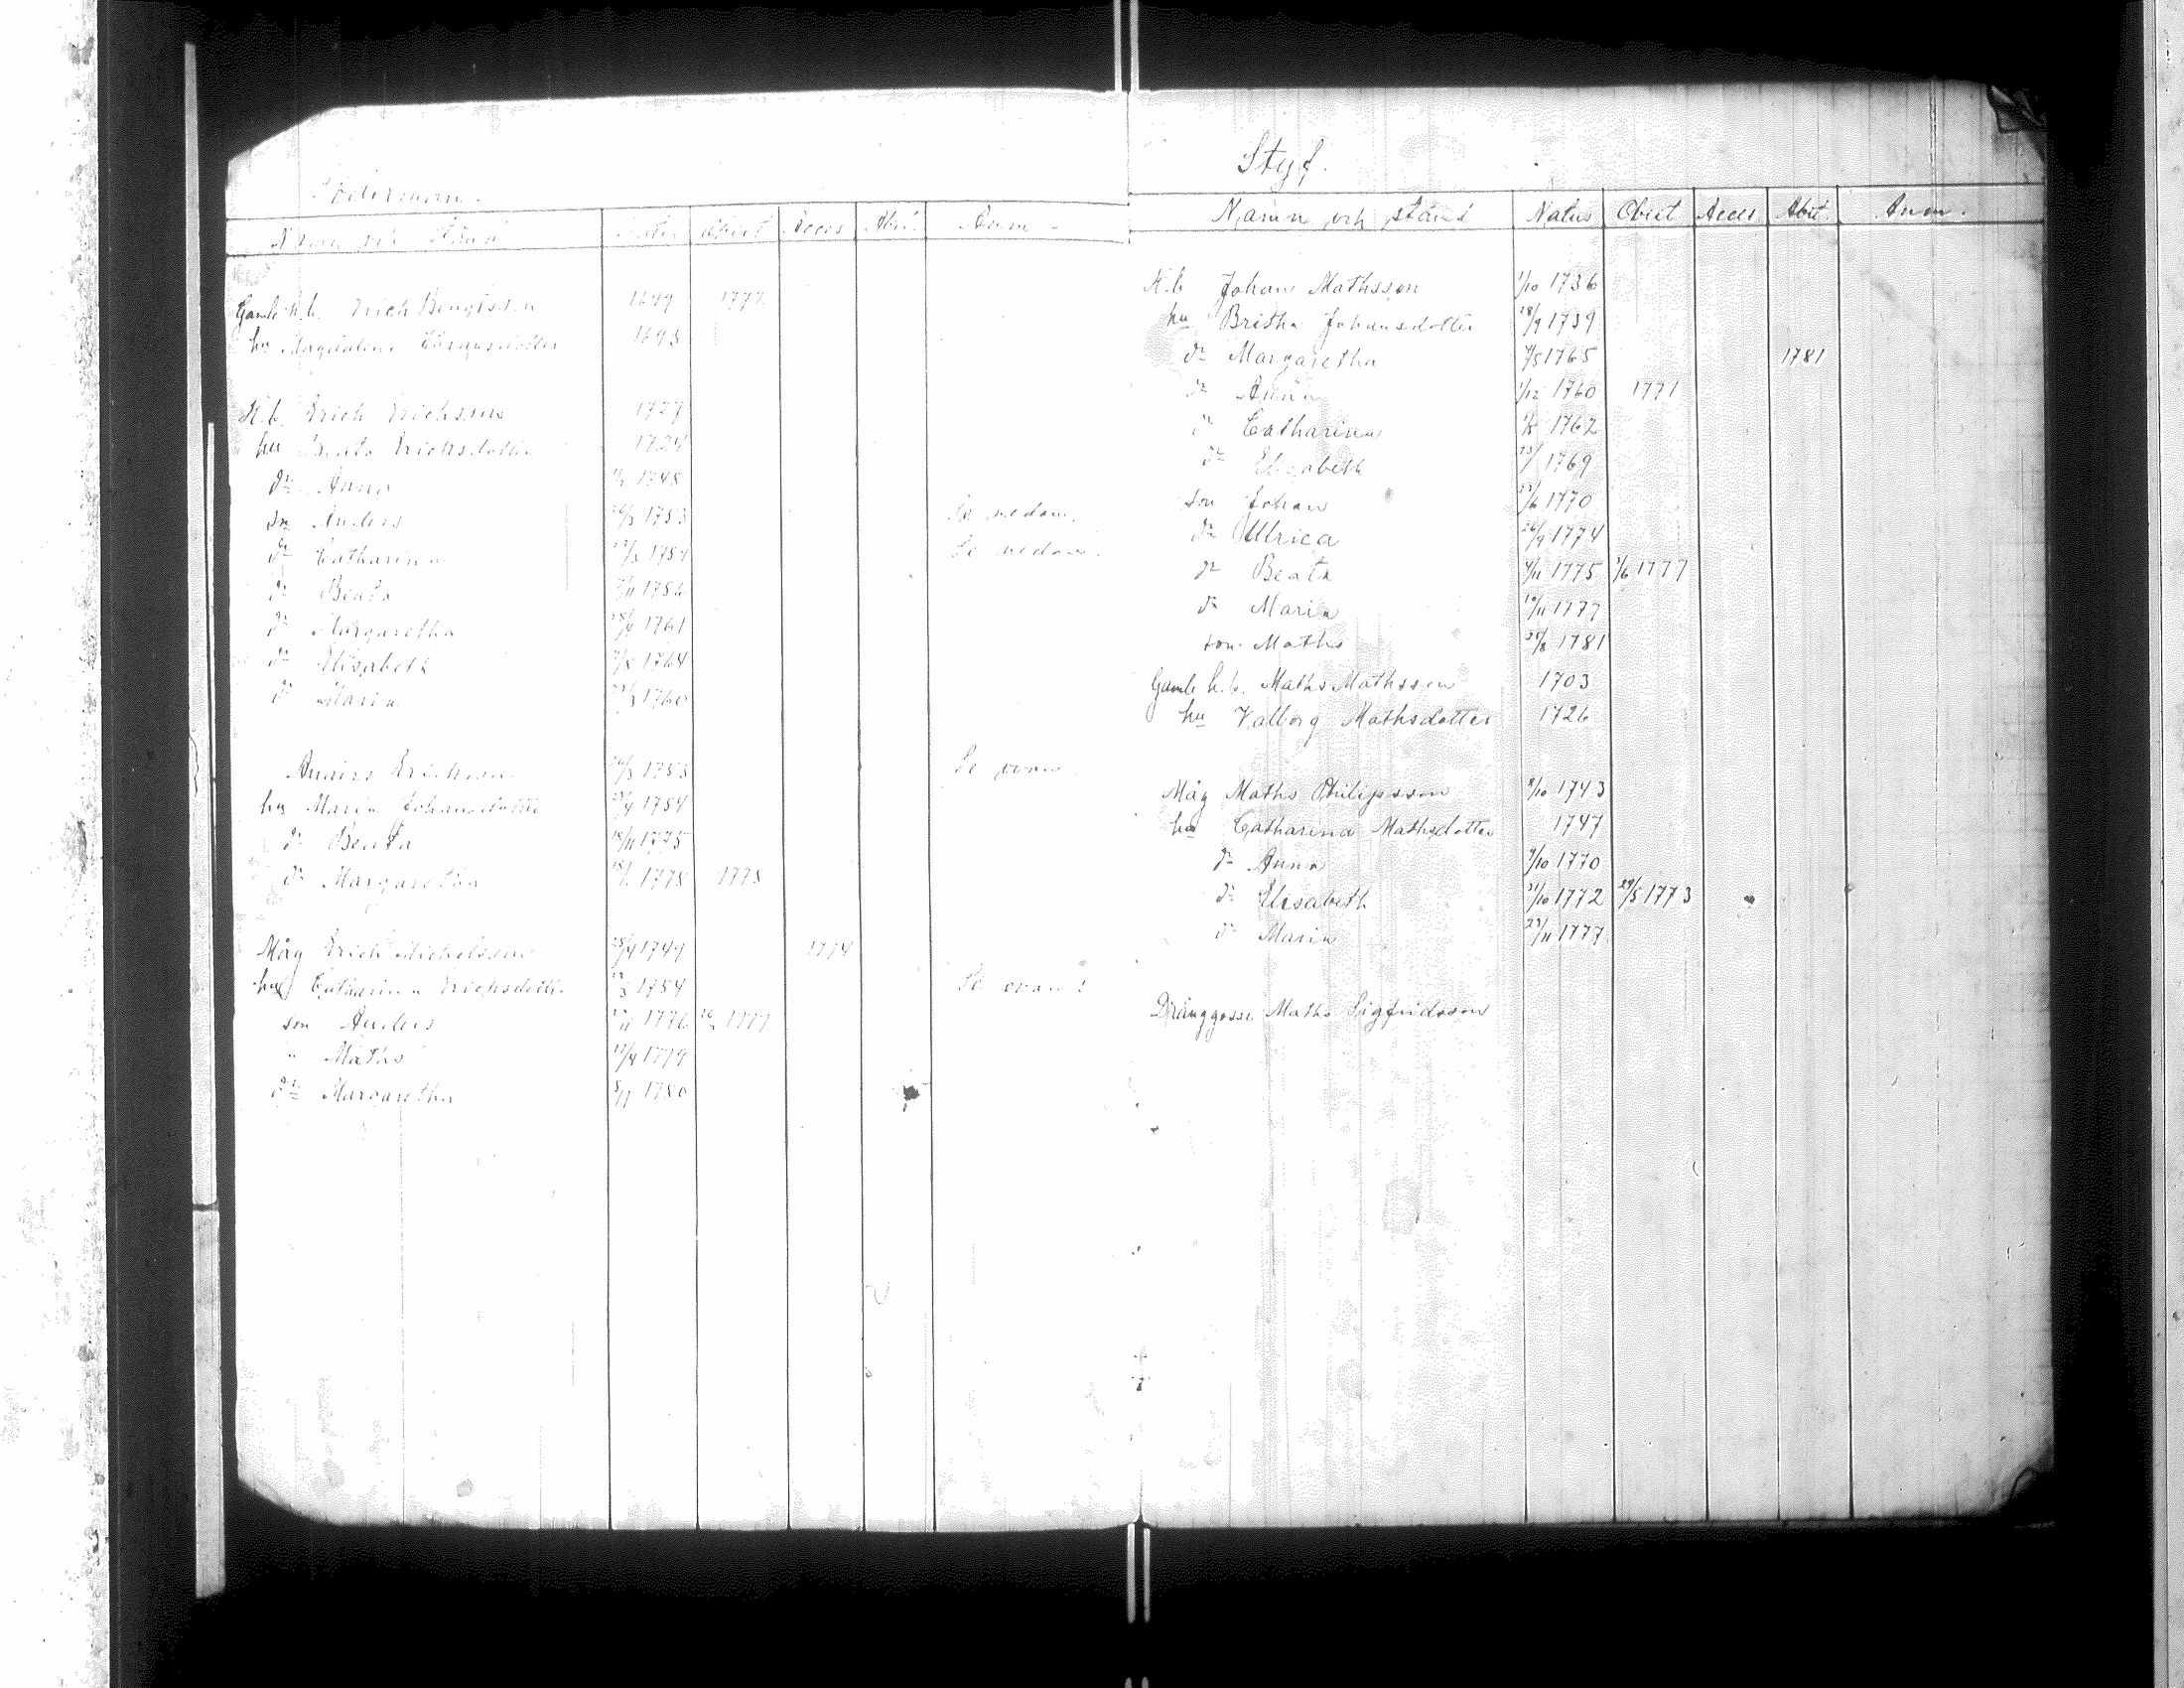 Söderman.
Namn och stånd Natus Obiit Acces Abit. Anm.
Gamle h.b. Erich Bengtsson 1699 1777
hu Magdalena 1693
H.b. Erich Erichsson 1727
hu Beata Erichsdotter 1724
dr Anna 1748
son Anders 26/3 1753 Se nedan.
dr Catharina 1754 Se nedan.
dr Beata 1756
dr Margaretha 1761
dr Elisabeth 1764
dr Maria 1760
Anders Erichsson 26/3 1753 Se ovan.
hu Maria Johansdotter 1754
dr Beata 18/11 1775
dr Margaretha 1778 1778
Måg Erich Michelsson 25/4 1749 1774
hu Catharina Erichsdotter 1754 Se ovan
son Anders 1776 1777
" Maths 17/4 1779
dr Margaretha 1780
Styf.
Namn och stånd Natus Obiit Acces Abit Anm.
H.b Johan Mathsson 1/10 1736
hu Britha Johansdotter 28/9 1739
dr Margaretha 4/5 1765 1781
dr Anna 1/12 1760 1771
dr Catharina 1762
dr Elisabeth 1769
son Johan 1770
dr Ulrica 26/9 1774
dr Beata 4/11 1775 1/6 1777
dr Maria 10/11 1777
son Maths 1781
Gamle h.b. Maths Mathsson 1703
hu Valborg Mathsdotter 1726
Måg Maths Philipsson 8/10 1743
hu Catharina Mathsdotter 1747
dr Anna 9/10 1770
dr Elisabeth 31/10 1772 29/5 1773
dr Maria 23/11 1777
Dränggosse Maths Sigfridsson